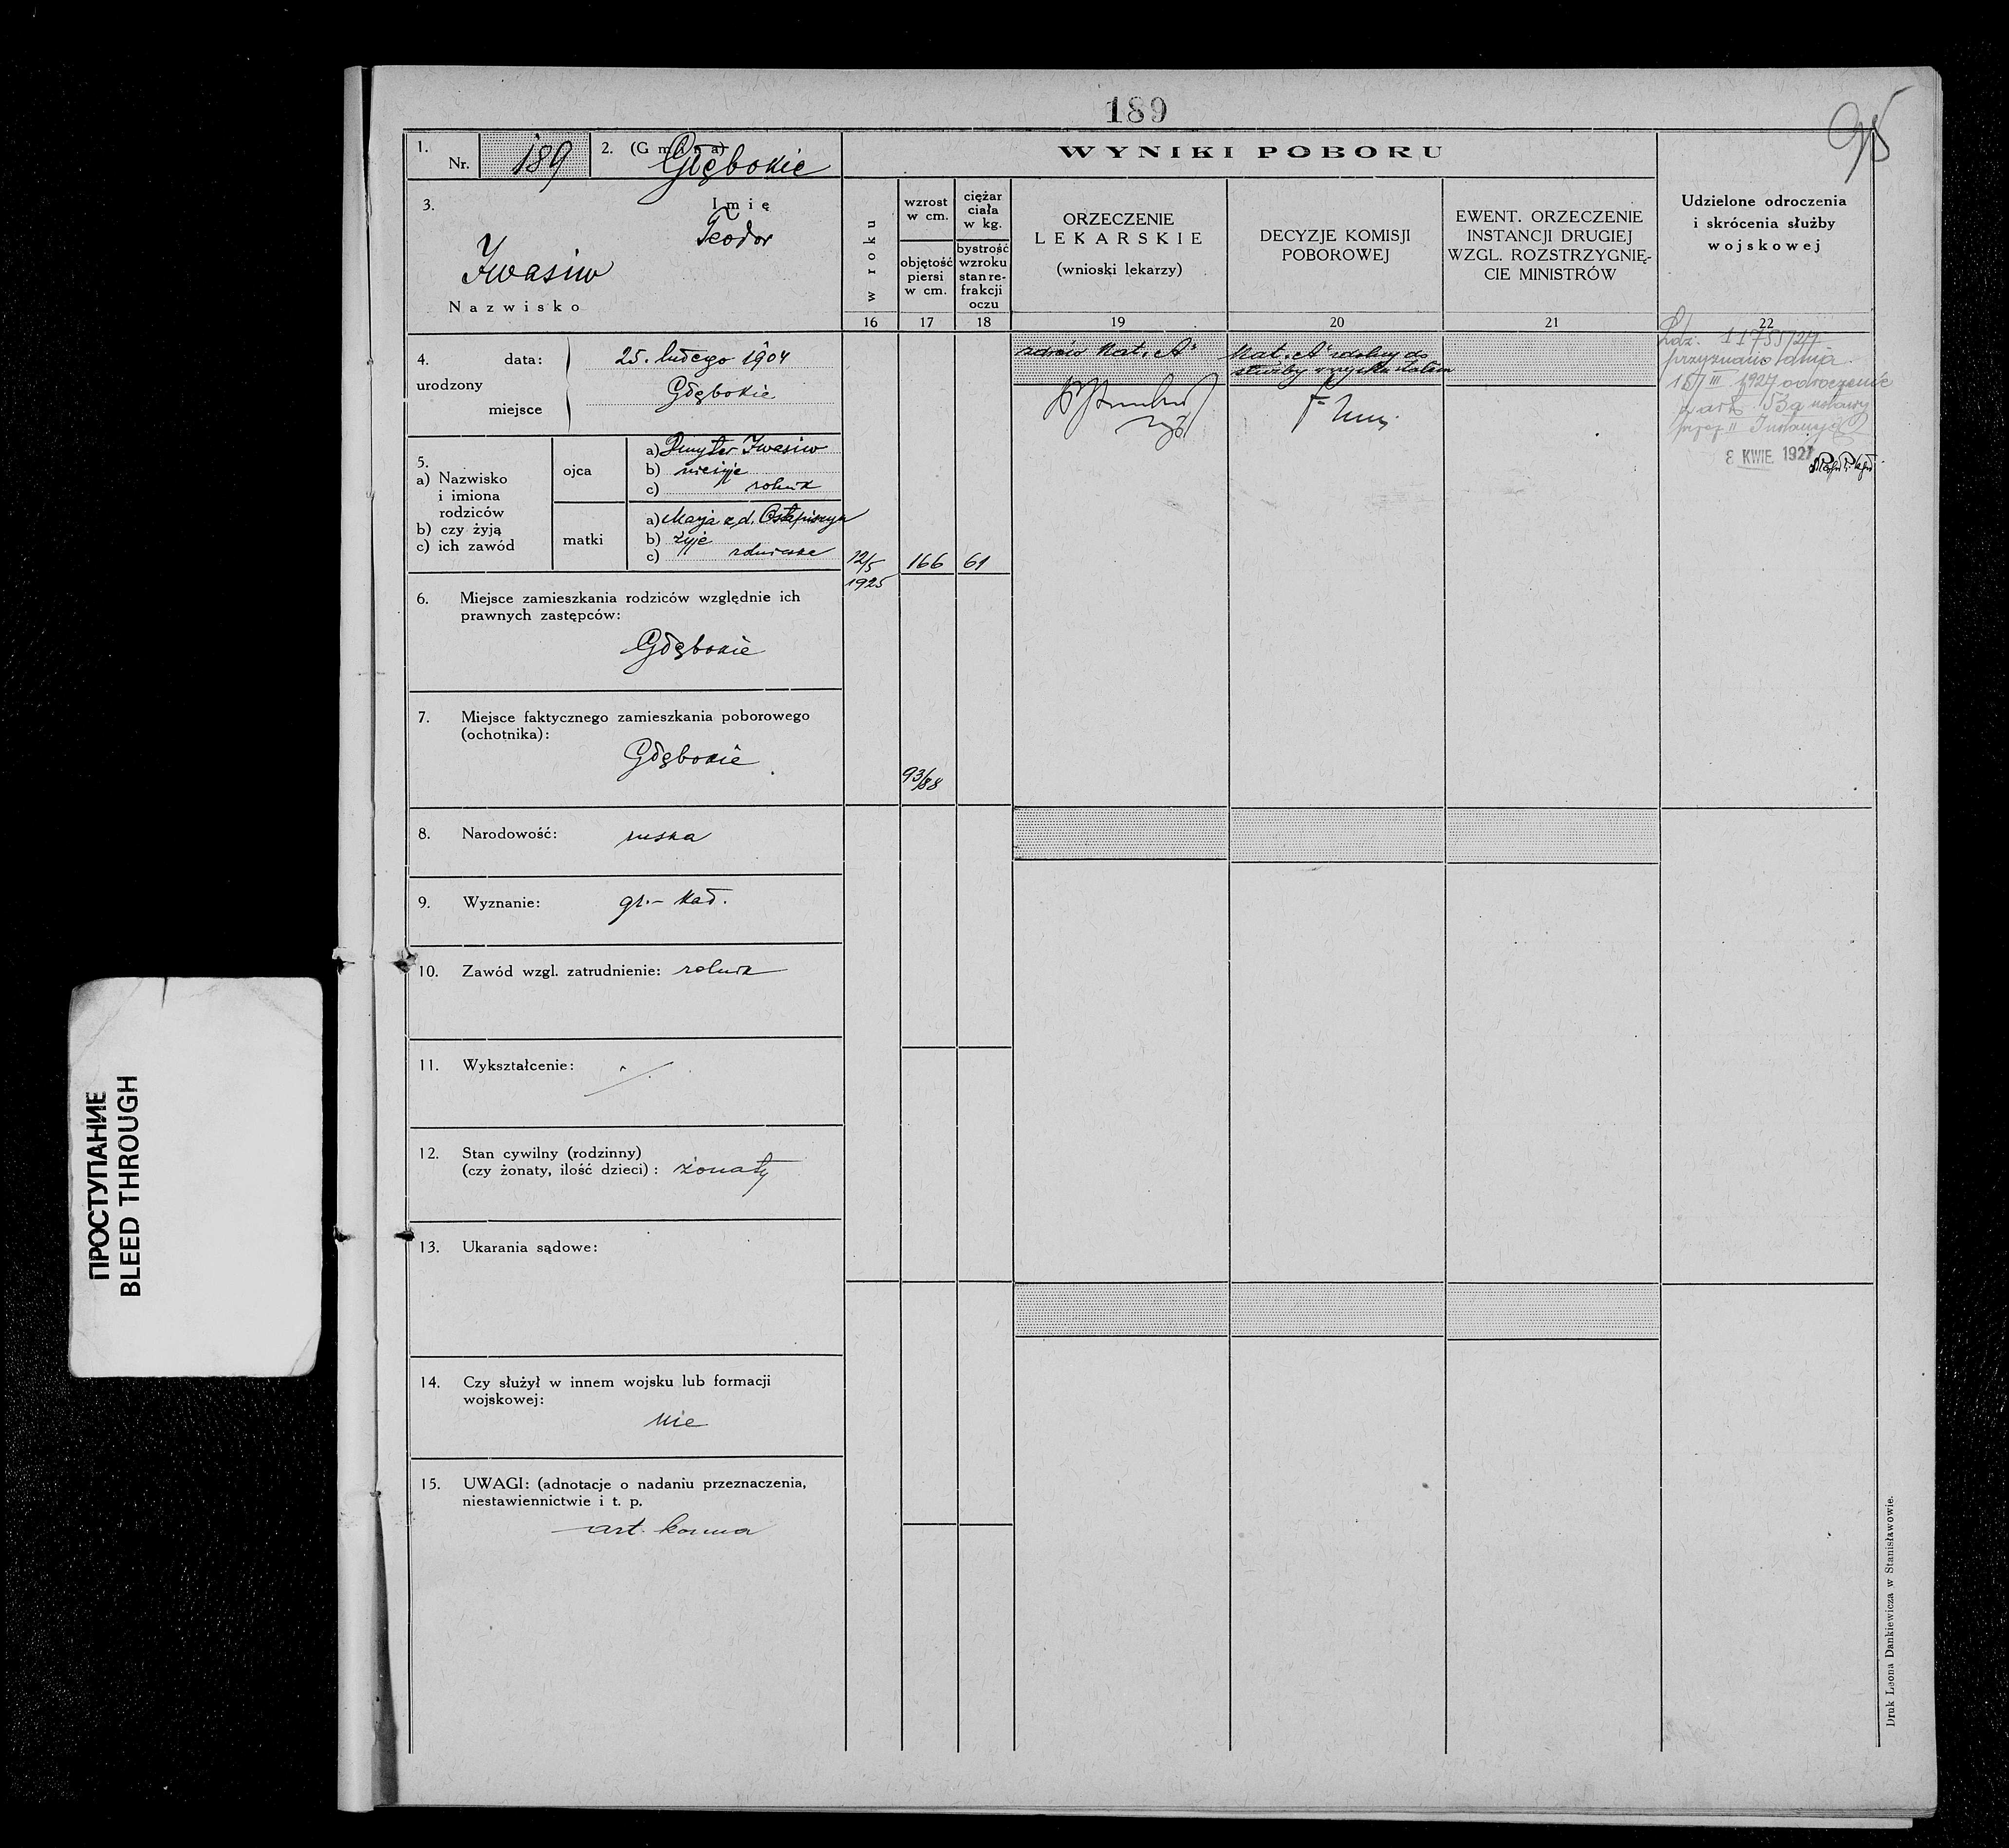 189
95
1.
Nr. 189
2. (Gmina) Głębokie
3.
Imię
Teodor
Iwasiw
Nazwisko
4.
urodzony
data: 25. lutego 1904
miejsce Głębokie
5.
a) Nazwisko
i imiona
rodziców
b) czy żyją
c) ich zawód
ojca
a) Dmyter Iwasiw
b) nieżyje
c) rolnik
matki
a) Marja z d.
b) żyje
c)
6. Miejsce zamieszkania rodziców względnie ich
prawnych zastępców:
Głębokie
7. Miejsce faktycznego zamieszkania poborowego
(ochotnika):
Głębokie
8. Narodowość: ruska
9. Wyznanie: gr.- kat.
10. Zawód wzgl. zatrudnienie: rolnik
11. Wykształcenie:
12. Stan cywilny (rodzinny)
(czy żonaty, ilość dzieci): żonaty
13. Ukarania sądowe:
14. Czy służył w innem wojsku lub formacji
wojskowej:
nie
15. UWAGI: (adnotacje o nadaniu przeznaczenia,
niestawiennictwie i t. p.
art. konna
WYNIKI POBORU
w roku
16
wzrost
w cm.
objętość
piersi
w cm.
17
ciężar
ciała
w kg.
bystrość
wzroku
stan re-
frakcji
oczu
18
ORZECZENIE
LEKARSKIE
(wnioski lekarzy)
19
DECYZJE KOMISJI
POBOROWEJ
20
EWENT. ORZECZENIE
INSTANCJI DRUGIEJ
WZGL. ROZSTRZYGNIĘ-
CIE MINISTRÓW
21
Udzielone odroczenia
i skrócenia służby
wojskowej
22
12/5
1925
166
61
93/88
zdrów Kat. „A"
Kat. „A" zdolny do
służby
przyznano dnia
1927 odroczenie
z art. 53a ustawy
8 KWIE. 1927
Druk Leona Dankiewicza w Stanisławowie.
ПРОСТУПАНИЕ
BLEED THROUGH